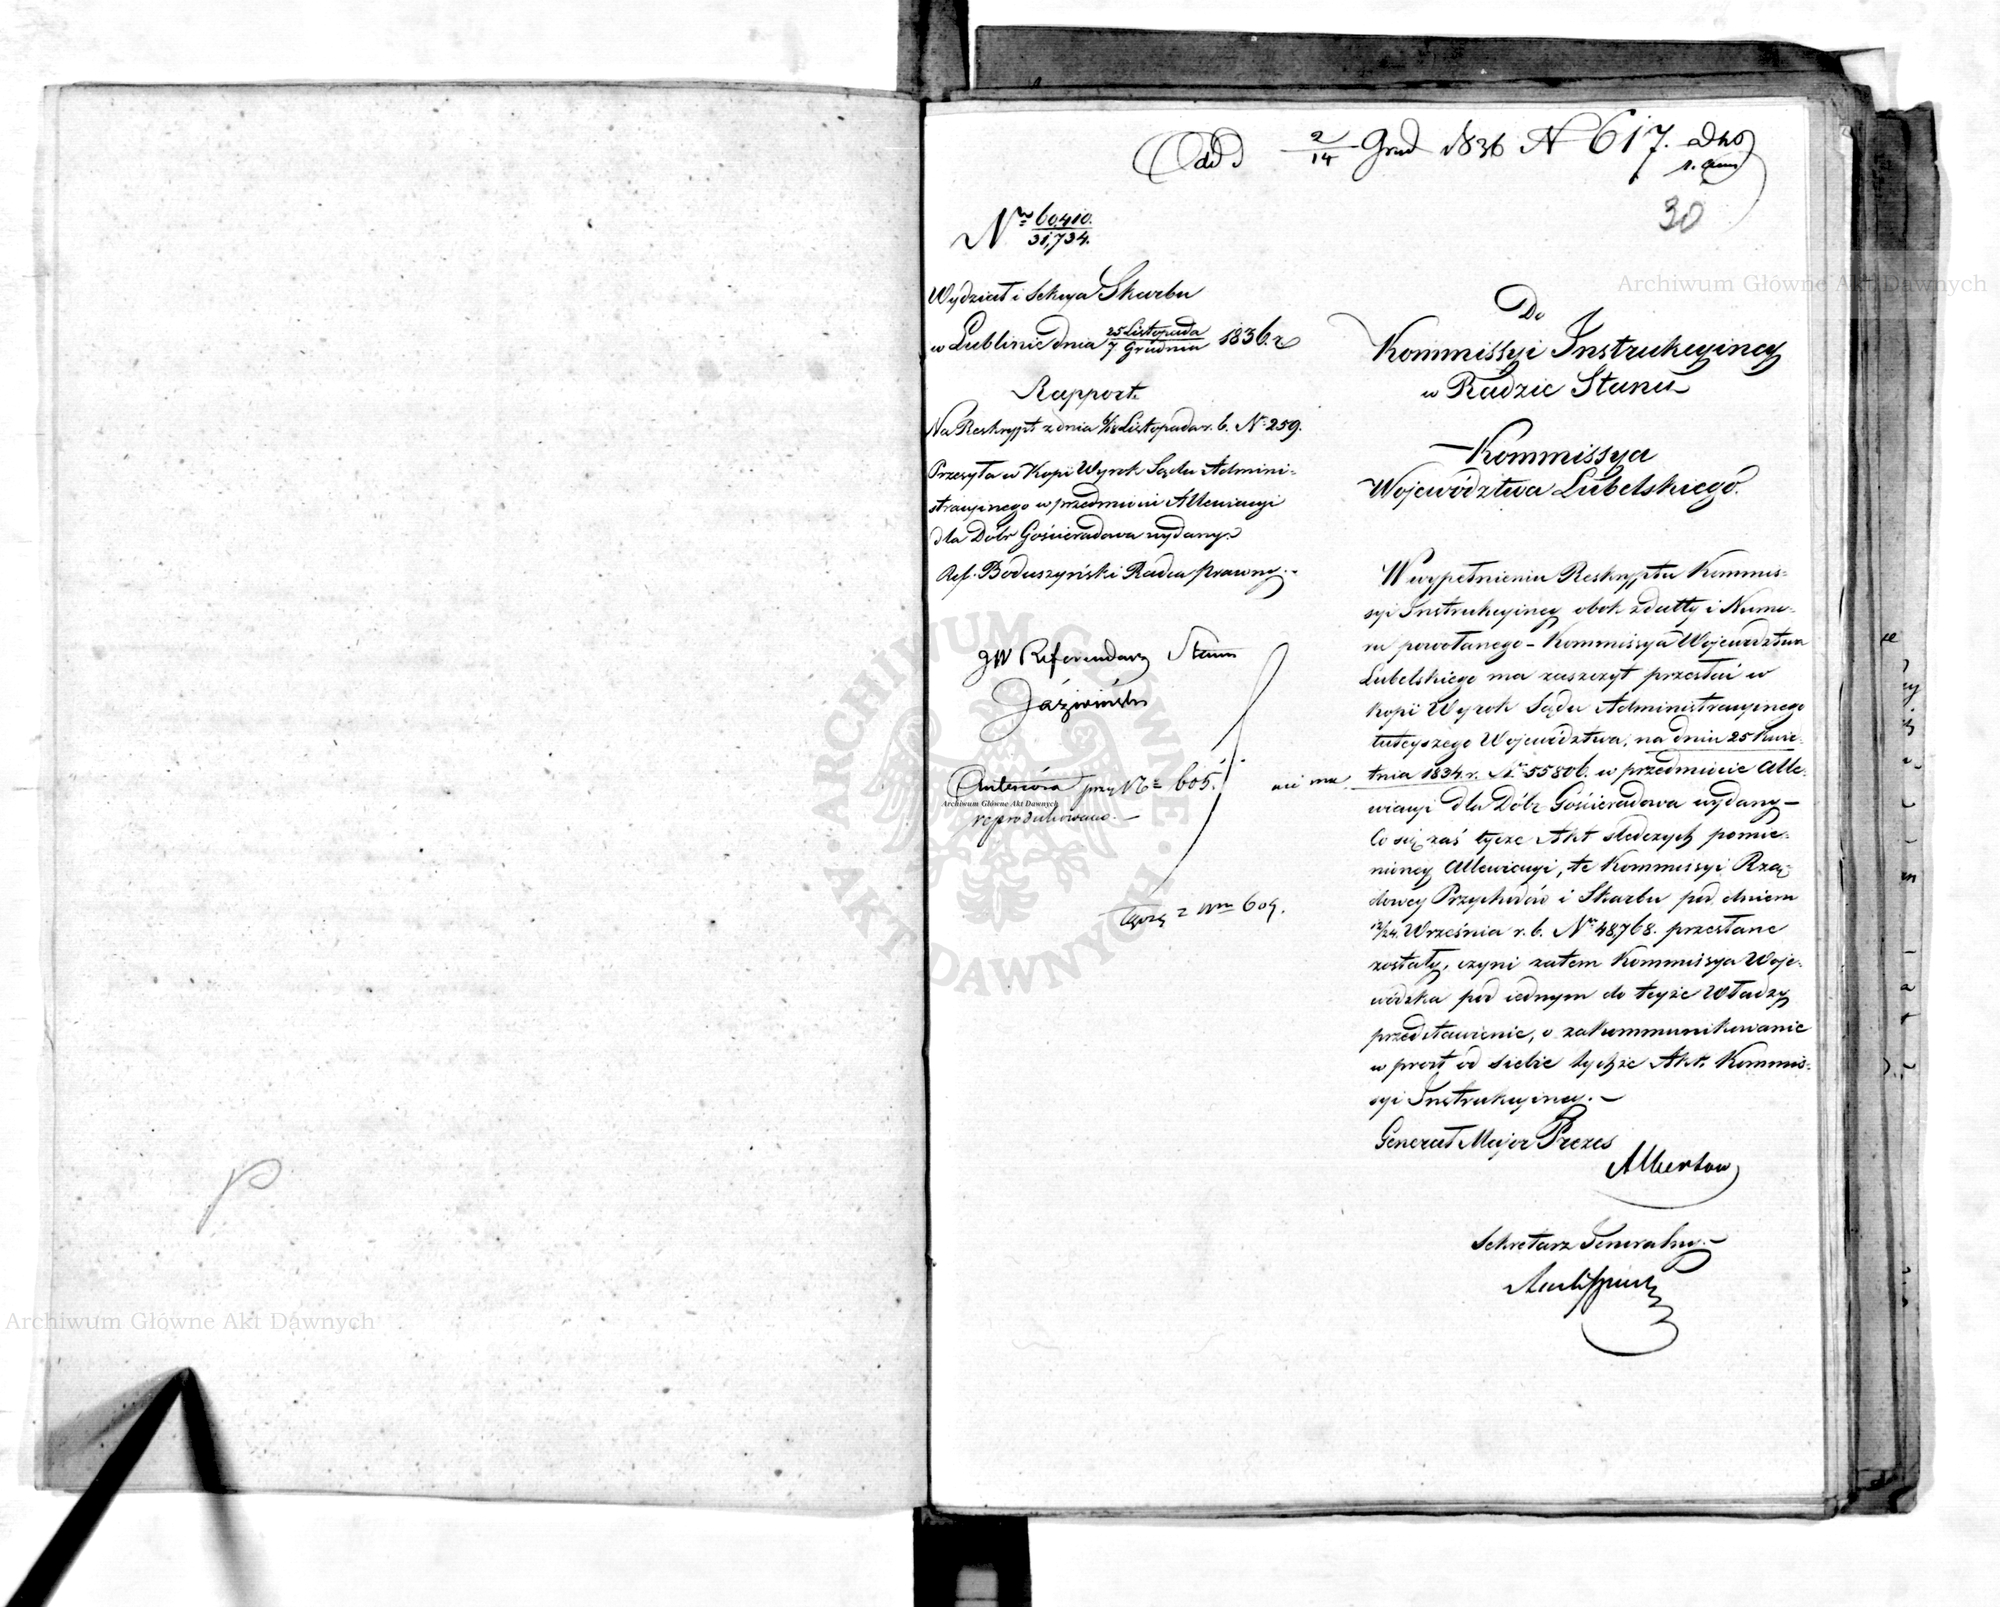 Odd d 2/14 Grud 1836 N 617.
30
Nro 60,410.
31,734.
Wydział i Sekcya Skarbu
w Lublinie dnia 25 Listopada / 7 Grudnia 1836. r
Rapport
Na Reskrypt z dnia 6/18 Listopada r. b. Nr 259.
Przesyła w Kopii Wyrok Sądu Admini-
stracyinego w przedmiocie Allewiacyi
dla Dóbr Gościeradowa wydany.
Ref. Boduszyński Radca Prawny.-
JW Referendarz Stanu
Jaźwiński
Anteriora przy No 605.
reprodukowano. -
nie ma
Łączą z Nrm 609.
Do
Kommissyi Instrukcyiney
w Radzie Stanu
Kommissya
Województwa Lubelskiego.
W wypełnieniu Reskryptu Kommis-
syi Instrukcyiney obok z datty i Nume-
ru powołanego - Kommissya Województwa
Lubelskiego ma zaszczyt przesłać w
kopii Wyrok Sądu Administracyinego
tuteyszego Województwa, na dniu 25 Kwie-
tnia 1834. r. Nr 55806. w przedmiocie Alle-
wiacyi dla Dóbr Gościeradowa wydany -
Co się zaś tycze Akt śledczych pomie-
nioney Allewiacyi, te Kommissyi Rzą-
dowey Przychodów i Skarbu pod dniem
12/24 Września r. b. Nr 48,768. przesłane
zostały, czyni zatem Kommissya Woje-
wódzka pod iednym do teyże Władzy
przedstawienie, o zakommunikowanie
w prost od siebie tychże Akt Kommis-
syi Instrukcyiney. -
Generał Major Prezes
Albertow
Sekretarz Generalny. -
Archiwum Główne Akt Dawnych
Archiwum Główne Akt Dawnych
Archiwum Główne Akt Dawnych
ARCHIWUM GŁÓWNE · AKT DAWNYCH ·